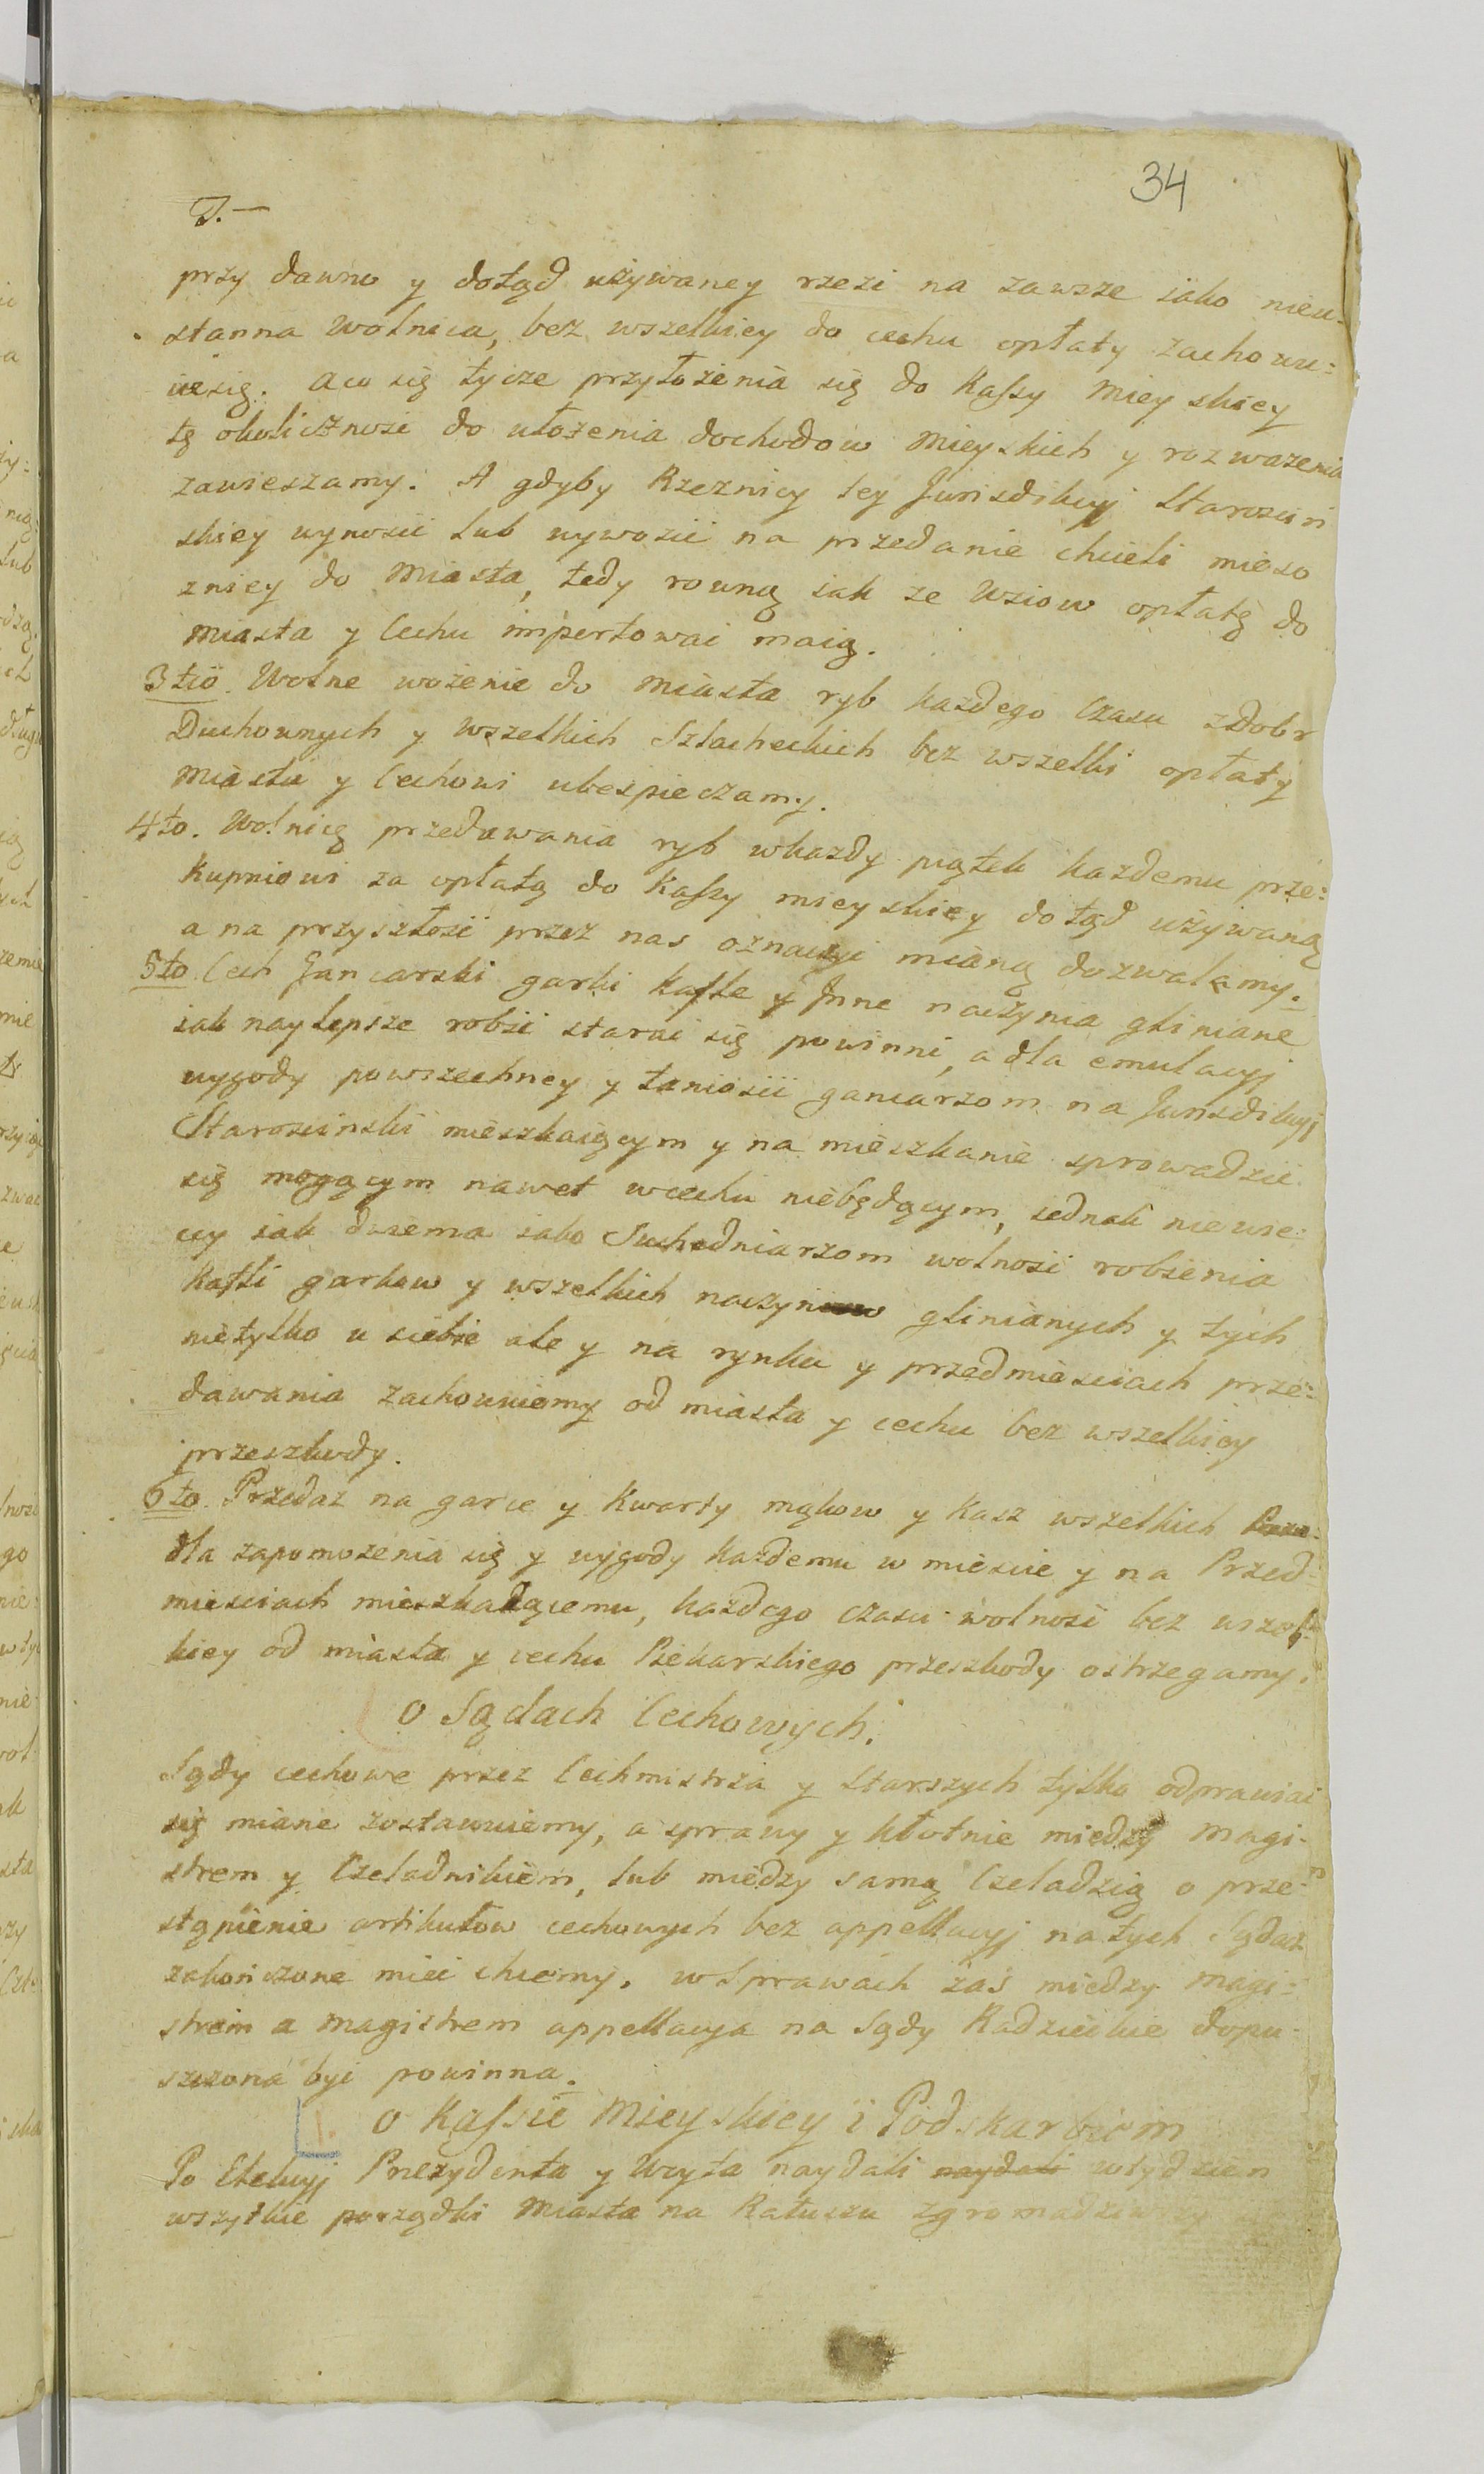 34
7.—
przy dawno y dotąd używaney rzezi na zawsze iako nieu-
stanna Wolnica, bez wszelkiey do cechu opłaty zachowu=
iesię. aco się tycze przyłożenia się do Kaſsy Mieyskiey
tę okoliczność do ułożenia dochodow Mieyskich y rozważenia
zawieszamy. A gdyby Rzeznicy tey Jurisdikcyi Starościń
skiey wynosić lub wywozić na przedanie chcieli mieso
zniey do Miasta, tedy rowną iak ze Wsiow opłatę do
Miasta y Cechu impertować maią.
3tio. Wolne wożenie do Miasta ryb każdego Czasu zDobr
Duchownych y wszelkich Szlacheckich bez wszelki opłaty
Miastu y Cechowi ubespieczamy.
4to. Wolnicę przedawania ryb wkażdy piątek każdemu prze=
Kupniowi za opłatą do Kaſsy mieyskiey dotąd używaną
a na przyszłość przez nas oznaczyć mianą dozwalamy.
5to. Cech Gancarski garki Kafle y Jnne naczynia gliniane
iak naylepsze robić starać się powinni, a dla emulacyi
wygody powszechney y taniości gancarzom na Jurisdikcyi
Starościnski mieszkaiącym y na mieszkanie sprowadzić
się mogącym nawet wcechu niebędącym, iednak niewie=
cy iak dwiema iako Suchedniarzom wolność robienia
Kafli garkow y wszelkich naczyniow glinianych y tych
nietylko u siebie ale y na rynku y przedmieściach prze=
dawania zachowuiemy od miasta y cechu bez wszelkiey
przeszkody.
6to. Przedaż na garce y Kwarty mąkow y Kasz wszelkich
dla zapomożenia się y wygody każdemu w mieście y na Przed=
mieściach mieszkaiącemu, każdego czasu wolność bez wszel=
kiey od miasta y cechu Piekarskiego przeszkody ostrzegamy.
O Sądach Cechowych.
Sądy cechowe przez Cechmistrza y Starszych tylko odprawiać
się miane zostawuiemy, a sprawy y kłotnie między Magi-
strem y Czeladnikiem, lub między samą Czeladzią o prze-
stąpienie artikułow cechowych bez appellacyi natych Sądach
zakończone mieć chcemy. wSprawach zaś między Magi=
strem a Magistrem appellacya na Sądy Radzieckie dopu-
szczona być powinna.
O Kaſsie Mieyskiey i Podskarbiem
Po Elekcyi Prezydenta y Wóyta naydali naydali wtydzien
wszytkie porządki Miasta na Ratuszu zgromadziwszy